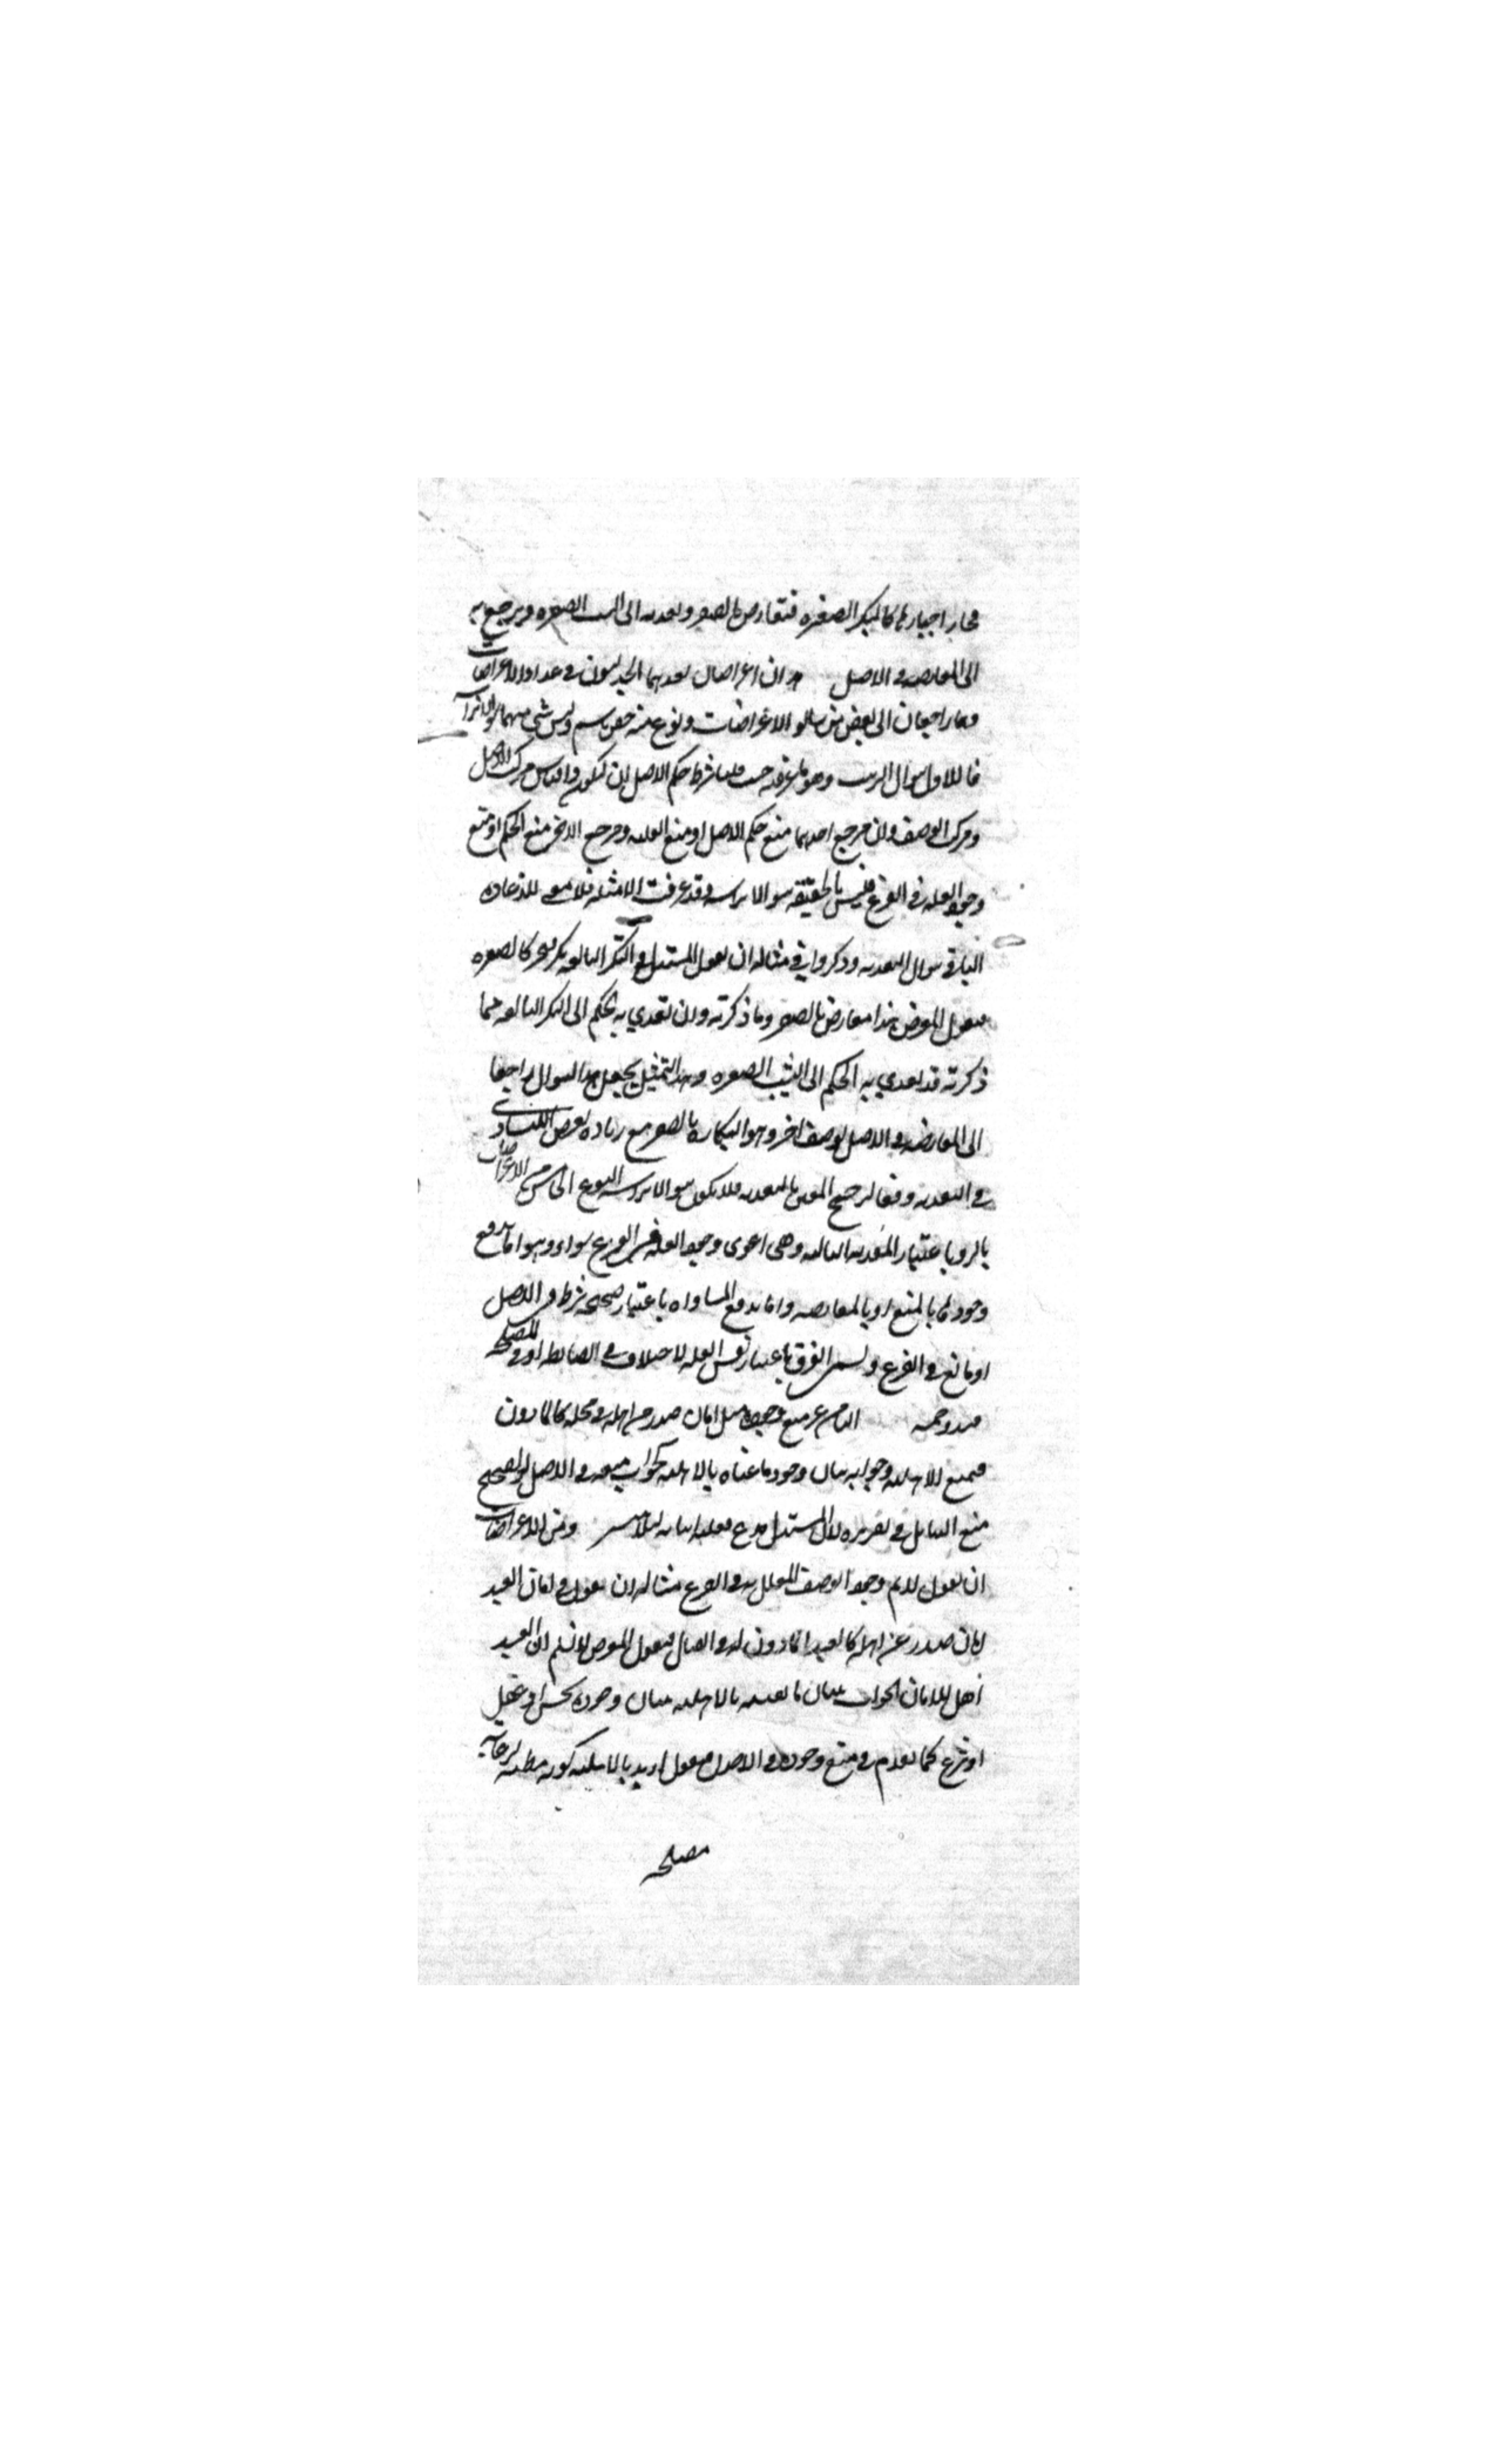 فجاز اجبارها كالبكر الصغيره فتعارض بالصغر وتعديه الى الثيب الصغيره ويرجع به
الى المعارضه في الاصل ان اعتراضان يعدهما الجدليون في عداد الاعتراضات
وهما راجعان الى بعض من سائر الاعتراضات ونوع منه خص باسم وليس شي منهما سوالا برأسه
فالاول سوال التركيب وهو ما عرفته حيث قلنا شرط حكم الاصل ان لا يكون ذا قياس مركب الاصل
ومركب الوصف وان مرجع احدهما منع حكم الاصل او منع العليه ومرجع الاخر منع الحكم او منع
وجود العله في الفرع فليس بالحقيقه سوالا براسه وقد عرفت الامثله فلا معنى للاعاده
الثاني سوال التعديه وذكروا في مثاله ان يقول المستدل في البكر البالغه بكر فتجبر كالصغيره
فيقول المعترض هذا معارض بالصغر وما ذكرته وان تعدي به الحكم الى البكر البالغه فما
ذكرته قد تعدي به الحكم الى الثيب الصغيره وهذا التمثيل يجعل هذا السوال راجعا
الى المعارضه في الاصل بوصف اخر وهو البكاره بالصغر مع زياده تعرض للتساوي
في التعديه دفعا لترجيح المعين بالتعديه فلا يكون سوالا براسه النوع الخامس من الاعتراضات
يالرد باعتبار المقدمه الثالثه وهي دعوى وجود العله في الفرع سواء وهو اما بدفع
وجودها بالمنع او بالمعارضه واما بدفع المساواه باعتبار ضميمه شرط في الاصل
او مانع في الفرع ويسمى الفرق باعتبار نفس العله لاختلاف في الضابطه او في المصلحه
مندرجه عشر منع وجوده مثل امان صدر من اهله في محله كالماذون
فيمنع الاهليه وجوابه بيان وجود ما عناه بالاهليه كجواب منعه في الاصل والصحيح
منع السائل في تقريره لان المستدل مدع فعليه اثباته لئلا ينتشر ومن الاعتراضات
ان يقول لا نسلم وجود الوصف المعلل به في الفرع مثاله ان يقول في امان العبد
امان صدر عن اهله كالعبد الماذون له في القتال فيقول المعترض لا نسلم ان العبد
اهل للامان الجواب ببيان ما يعنيه بالاهليه ببيان وجوده بحس او عقل
او شرع كما تقدم في منع وجوده في الاصل فيقول اريد بالاهليه كونه مظنه لرعايه
مصلحه